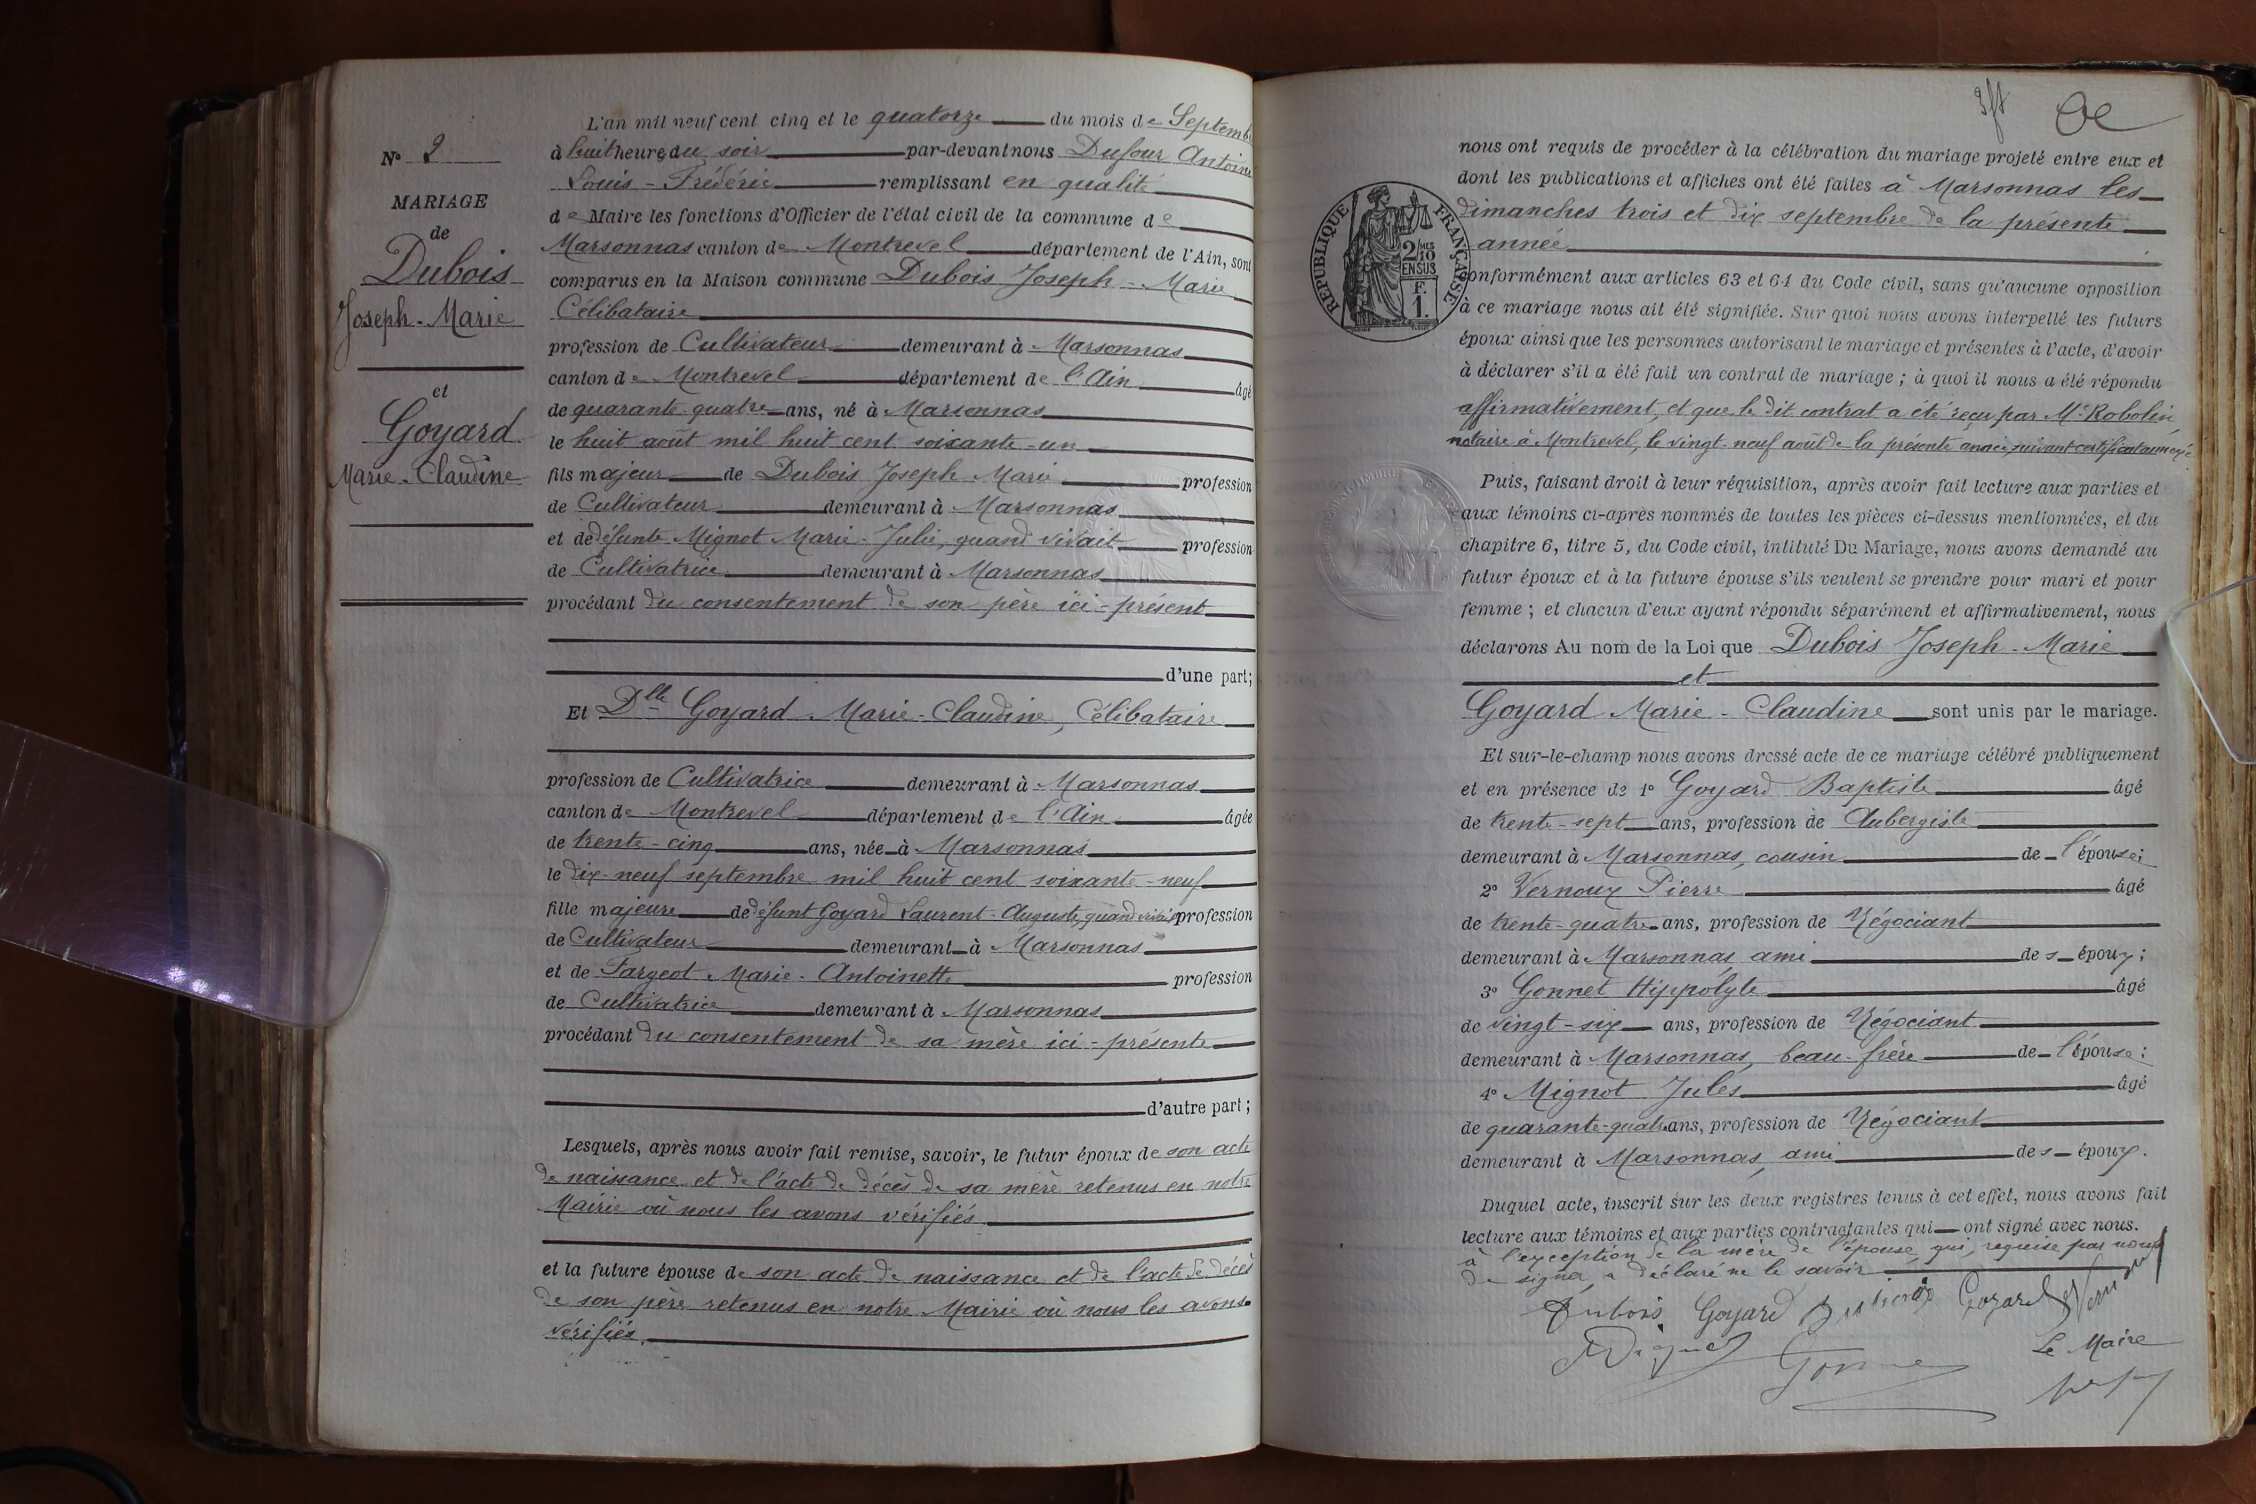 N° 2
MARIAGE
de
Dubois
Joseph-Marie
et
Goyard
Marie-Claudine
L'an mil neuf cent cinq et le quatorze du mois de Septembre
à huit heures du soir par-devant nous Dufour Antoine
Louis-Frédéric remplissant en qualité
de Maire les fonctions d'Officier de l'état civil de la commune de
Marsonnas canton de Montrevel département de l'Ain, sont
comparus en la Maison commune Dubois Joseph-Marie
Célibataire
profession de Cultivateur demeurant à Marsonnas
canton de Montrevel département de l'Ain âgé
de quarante-quatre ans, né à Marsonnas
le huit août mil huit cent soixante-un
fils majeur de Dubois Joseph Marie profession
de Cultivateur demeurant à Marsonnas
et de défunte Mignot Marie-Julie, quand vivait profession
de Cultivatrice demeurant à Marsonnas
procédant du consentement de son père ici-présent
d'une part;
Et Dlle Goyard Marie-Claudine, Célibataire
profession de Cultivatrice demeurant à Marsonnas
canton de Montrevel département de l'Ain âgée
de trente-cinq ans, née à Marsonnas
le dix-neuf septembre mil huit cent soixante-neuf
fille majeure de défunt Goyard Laurent-Auguste, quand vivait profession
de Cultivateur demeurant à Marsonnas
et de Fargeot Marie-Antoinette profession
de Cultivatrice demeurant à Marsonnas
procédant du consentement de sa mère ici-présente
d'autre part;
Lesquels, après nous avoir fait remise, savoir, le futur époux de son acte
de naissance et de l'acte de décès de sa mère retenus en notre
Mairie où nous les avons vérifiés
et la future épouse de son acte de naissance et de l'acte de décès
de son père retenus en notre Mairie où nous les avons
vérifiés.
nous ont requis de procéder à la célébration du mariage projeté entre eux et
dont les publications et affiches ont été faites à Marsonnas les
dimanches trois et dix septembre de la présente
année
RÉPUBLIQUE FRANÇAISE
2/10 EN SUS
F. 1.
conformément aux articles 63 et 64 du Code civil, sans qu'aucune opposition
à ce mariage nous ait été signifiée. Sur quoi nous avons interpellé les futurs
époux ainsi que les personnes autorisant le mariage et présentes à l'acte, d'avoir
à déclarer s'il a été fait un contrat de mariage; à quoi il nous a été répondu
affirmativement, et que le dit contrat a été reçu par Me Robolin
notaire à Montrevel, le vingt-neuf août de la présente année, suivant certificat annexé
Puis, faisant droit à leur réquisition, après avoir fait lecture aux parties et
aux témoins ci-après nommés de toutes les pièces ci-dessus mentionnées, et du
chapitre 6, titre 5, du Code civil, intitulé Du Mariage, nous avons demandé au
futur époux et à la future épouse s'ils veulent se prendre pour mari et pour
femme; et chacun d'eux ayant répondu séparément et affirmativement, nous
déclarons Au nom de la Loi que Dubois Joseph-Marie
et
Goyard Marie-Claudine sont unis par le mariage.
Et sur-le-champ nous avons dressé acte de ce mariage célébré publiquement
et en présence de 1° Goyard Baptiste âgé
de trente-sept ans, profession de Aubergiste
demeurant à Marsonnas, cousin de l'épouse;
2° Vernoux Pierre âgé
de trente-quatre ans, profession de Négociant
demeurant à Marsonnas ami des époux;
3° Gonnet Hippolyte âgé
de vingt-six ans, profession de Négociant
demeurant à Marsonnas, beau-frère de l'épouse;
4° Mignot Jules âgé
de quarante-quatre ans, profession de Négociant
demeurant à Marsonnas, ami des époux.
Duquel acte, inscrit sur les deux registres tenus à cet effet, nous avons fait
lecture aux témoins et aux parties contractantes qui ont signé avec nous.
à l'exception de la mère de l'épouse, qui, requise par nous
de signer a déclaré ne le savoir
Dubois Goyard Goyard Vernoux
Mignot Gonnet Le Maire